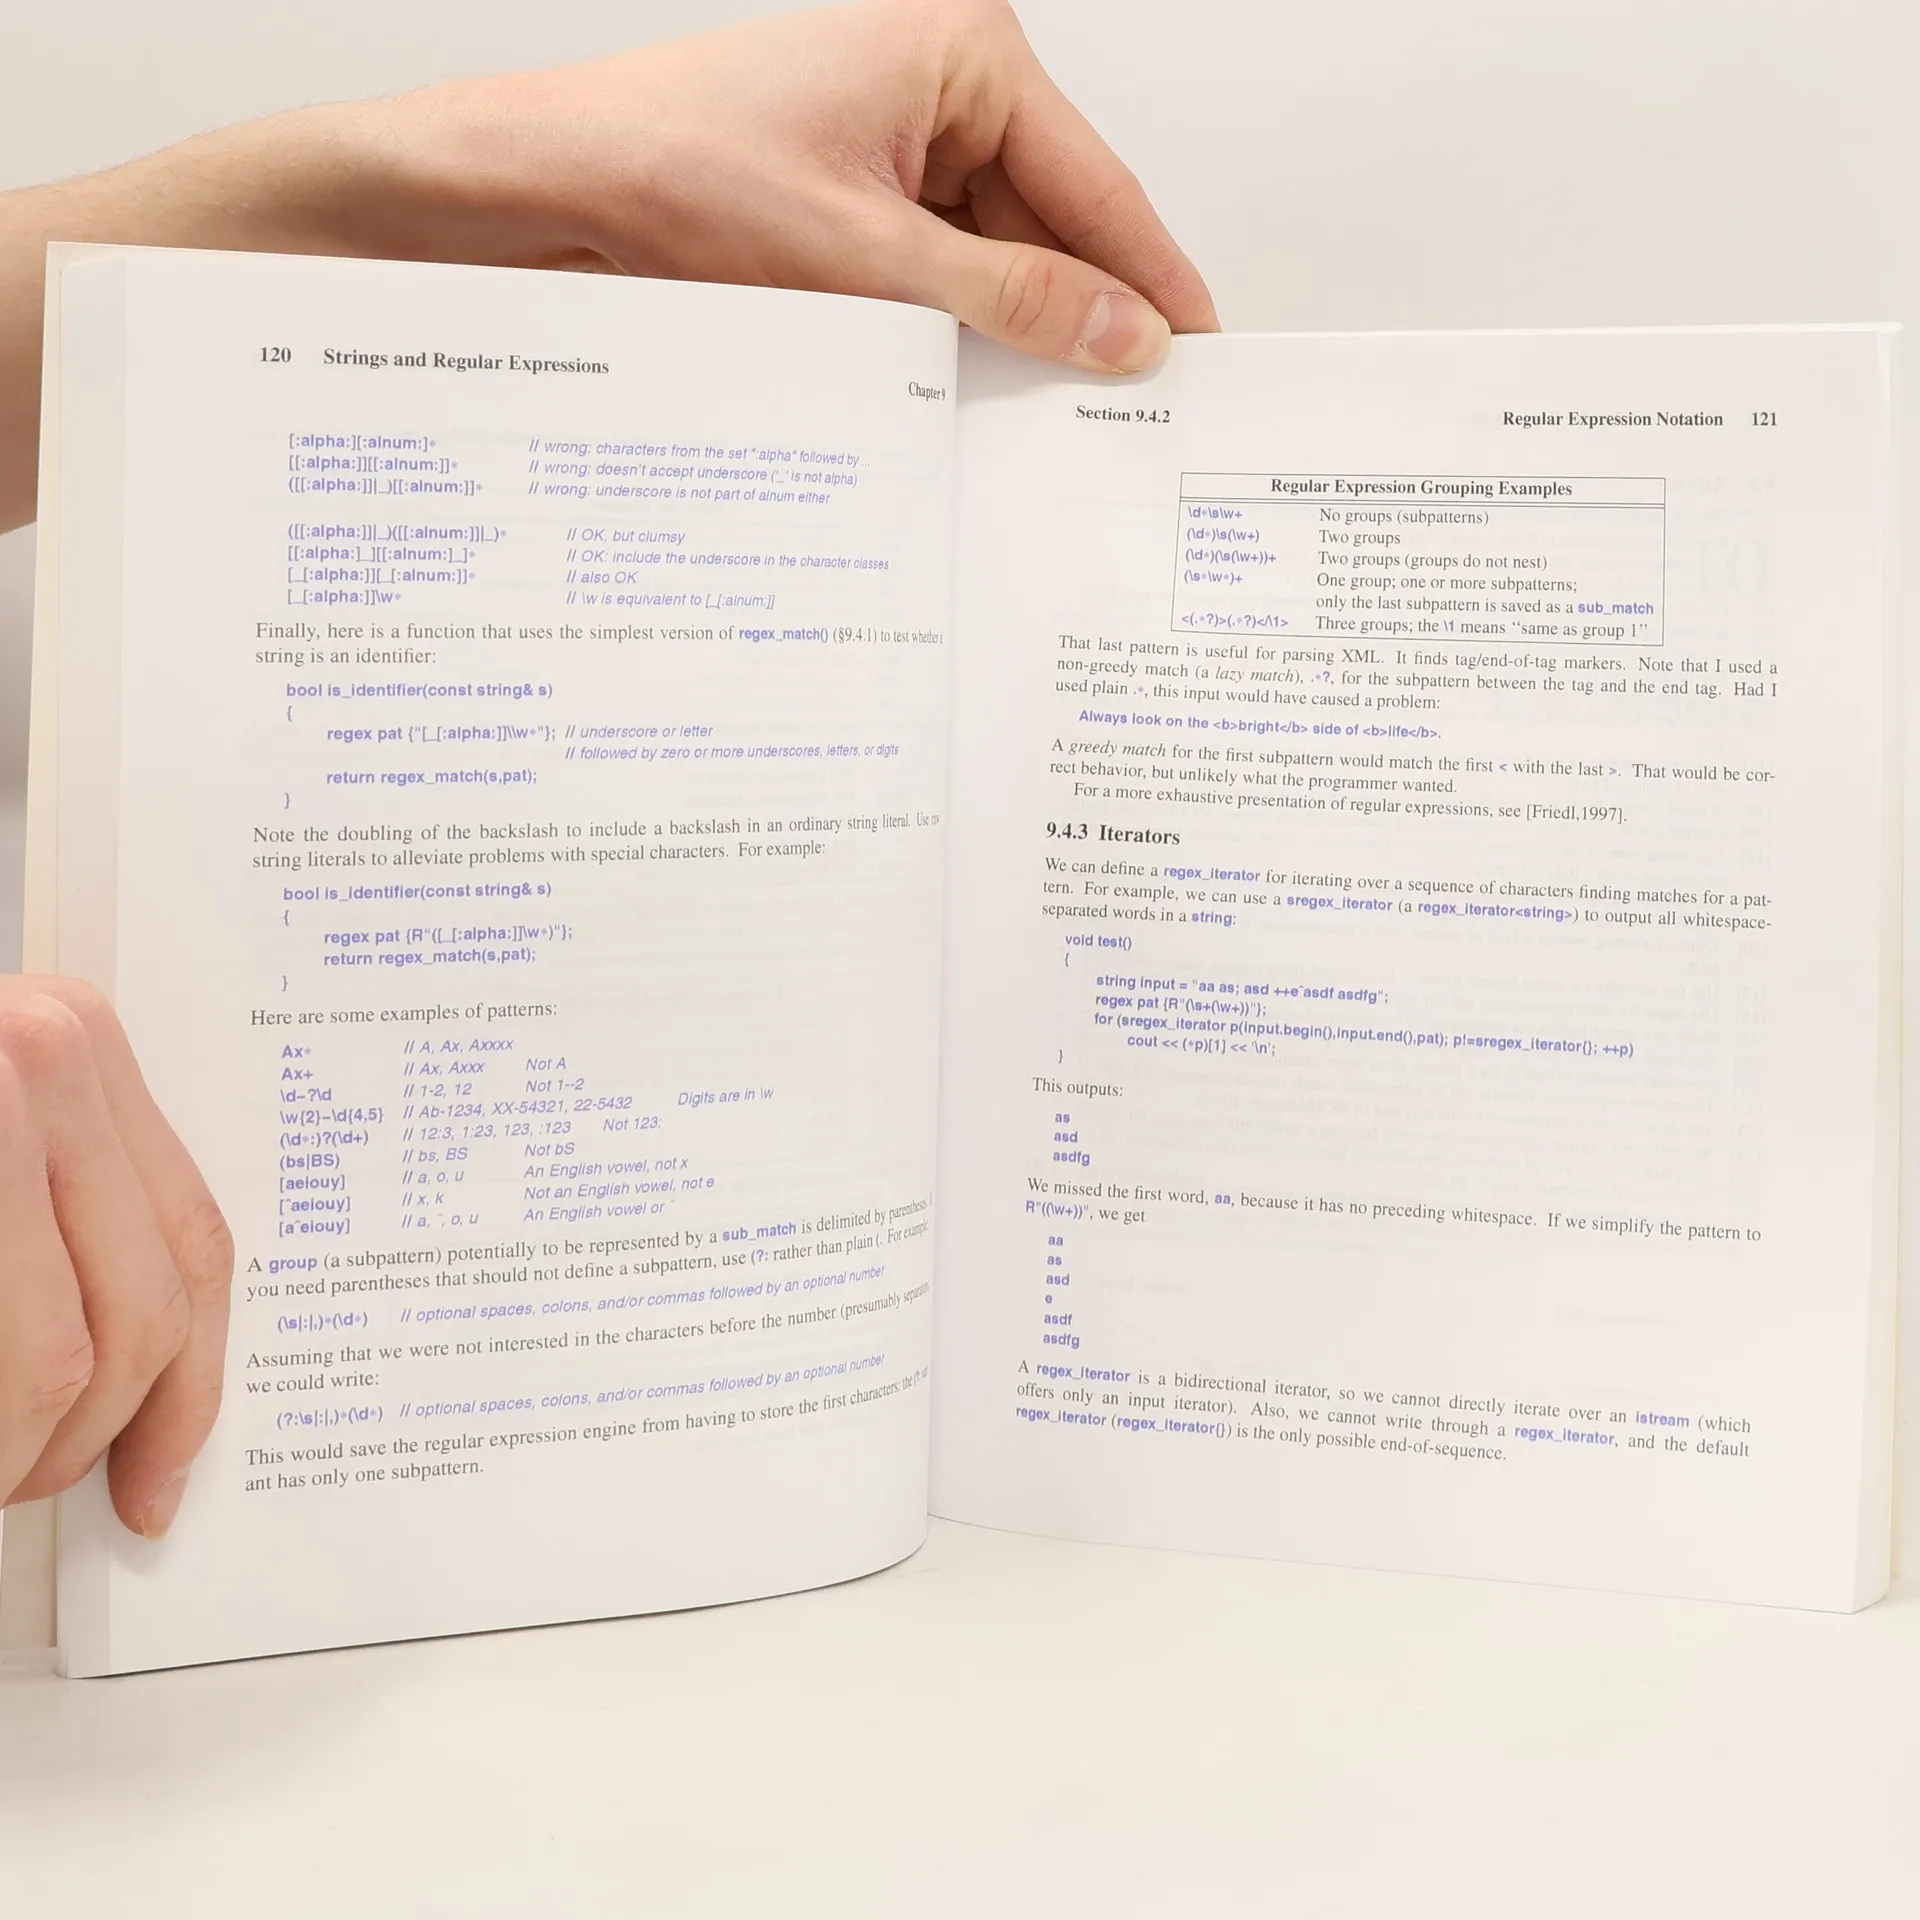 120 Strings and Regular Expressions
Chapter 9
[:alpha:][:alnum:]* // wrong: characters from the set ":alpha" followed by ...
[[:alpha:]][[:alnum:]]* // wrong: doesn't accept underscore ('_' is not alpha)
([[:alpha:]]|_)[[:alnum:]]* // wrong: underscore is not part of alnum either
([[:alpha:]]|_)([[:alnum:]]|_)* // OK, but clumsy
[[:alpha:]_][[:alnum:]_]* // OK: include the underscore in the character classes
[_[:alpha:]][_[:alnum:]]* // also OK
[_[:alpha:]]\w* // \w is equivalent to [_[:alnum:]]
Finally, here is a function that uses the simplest version of regex_match() (§9.4.1) to test whether a
string is an identifier:
bool is_identifier(const string& s)
{
regex pat {"[_[:alpha:]]\\w*"}; // underscore or letter
// followed by zero or more underscores, letters, or digits
return regex_match(s,pat);
}
Note the doubling of the backslash to include a backslash in an ordinary string literal. Use raw
string literals to alleviate problems with special characters. For example:
bool is_identifier(const string& s)
{
regex pat {R"([_[:alpha:]]\w*)"};
return regex_match(s,pat);
}
Here are some examples of patterns:
Ax* // A, Ax, Axxxx
Ax+ // Ax, Axxx Not A
\d-?\d // 1-2, 12 Not 1--2
\w{2}-\d{4,5} // Ab-1234, XX-54321, 22-5432 Digits are in \w
(\d*:)?(\d+) // 12:3, 1:23, 123, :123 Not 123:
(bs|BS) // bs, BS Not bS
[aeiouy] // a, o, u An English vowel, not x
[^aeiouy] // x, k Not an English vowel, not e
[a^eiouy] // a, ^, o, u An English vowel or ^
A group (a subpattern) potentially to be represented by a sub_match is delimited by parentheses.
you need parentheses that should not define a subpattern, use (?: rather than plain (. For example
(\s|:|,)*(\d*) // optional spaces, colons, and/or commas followed by an optional number
Assuming that we were not interested in the characters before the number (presumably
we could write:
(?:\s|:|,)*(\d*) // optional spaces, colons, and/or commas followed by an optional number
This would save the regular expression engine from having to store the first characters: the
ant has only one subpattern.
Section 9.4.2 Regular Expression Notation 121
Regular Expression Grouping Examples
\d*\s\w+ No groups (subpatterns)
(\d*)\s(\w+) Two groups
(\d*)(\s(\w+))+ Two groups (groups do not nest)
(\s*\w*)+ One group; one or more subpatterns;
only the last subpattern is saved as a sub_match
<(.*?)>(.*?)</\1> Three groups; the \1 means “same as group 1”
That last pattern is useful for parsing XML. It finds tag/end-of-tag markers. Note that I used a
non-greedy match (a lazy match), .*?, for the subpattern between the tag and the end tag. Had I
used plain .*, this input would have caused a problem:
Always look on the <b>bright</b> side of <b>life</b>.
A greedy match for the first subpattern would match the first < with the last >. That would be cor-
rect behavior, but unlikely what the programmer wanted.
For a more exhaustive presentation of regular expressions, see [Friedl,1997].
9.4.3 Iterators
We can define a regex_iterator for iterating over a sequence of characters finding matches for a pat-
tern. For example, we can use a sregex_iterator (a regex_iterator<string>) to output all whitespace-
separated words in a string:
void test()
{
string input = "aa as; asd ++e^asdf asdfg";
regex pat {R"(\s+(\w+))"};
for (sregex_iterator p(input.begin(),input.end(),pat); p!=sregex_iterator{}; ++p)
cout << (*p)[1] << '\n';
}
This outputs:
as
asd
asdfg
We missed the first word, aa, because it has no preceding whitespace. If we simplify the pattern to
R"((\w+))", we get
aa
as
asd
e
asdf
asdfg
A regex_iterator is a bidirectional iterator, so we cannot directly iterate over an istream (which
offers only an input iterator). Also, we cannot write through a regex_iterator, and the default
regex_iterator (regex_iterator{}) is the only possible end-of-sequence.